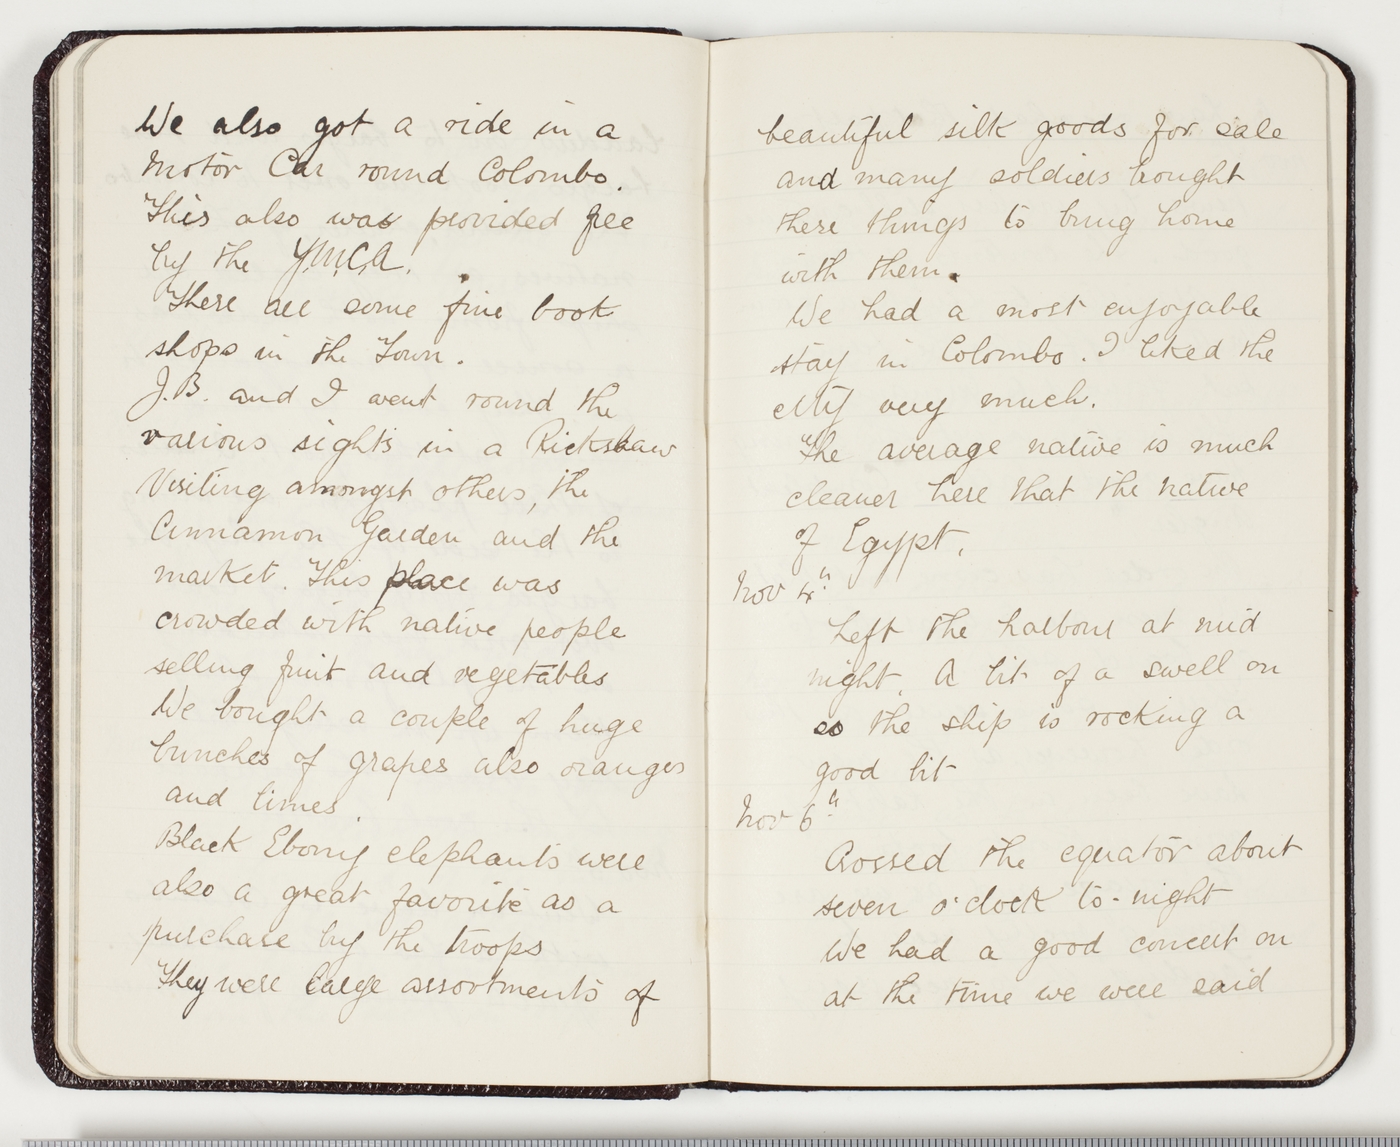 We also got a ride in a
Motor Car round Colombo.
This also was provided free
by the Y.M.C.A.
There are some fine book
shops in the Town.
J.B. and I went round the
various sights in a Rickshaw
Visiting amongst others, the
Cinnamon Garden and the
market. This place was
crowded with native people
selling fruit and vegetables
We bought a couple of huge
bunches of grapes also oranges
and limes.
Black Ebony elephants were
also a great favorite as a
purchase by the troops
They were large assortments of
beautiful silk goods for sale
and many soldiers bought
these things to bring home
with them.
We had a most enjoyable
stay in Colombo. I liked the
city very much.
The average native is much
cleaner here that the native
of Egypt.
Nov 4th
Left the harbour at mid
night. A bit of a swell on
so the ship is rocking a
good bit
Nov 6th
Crossed the equator about
seven o'clock to-night
We had a good concert on
at the time we were said